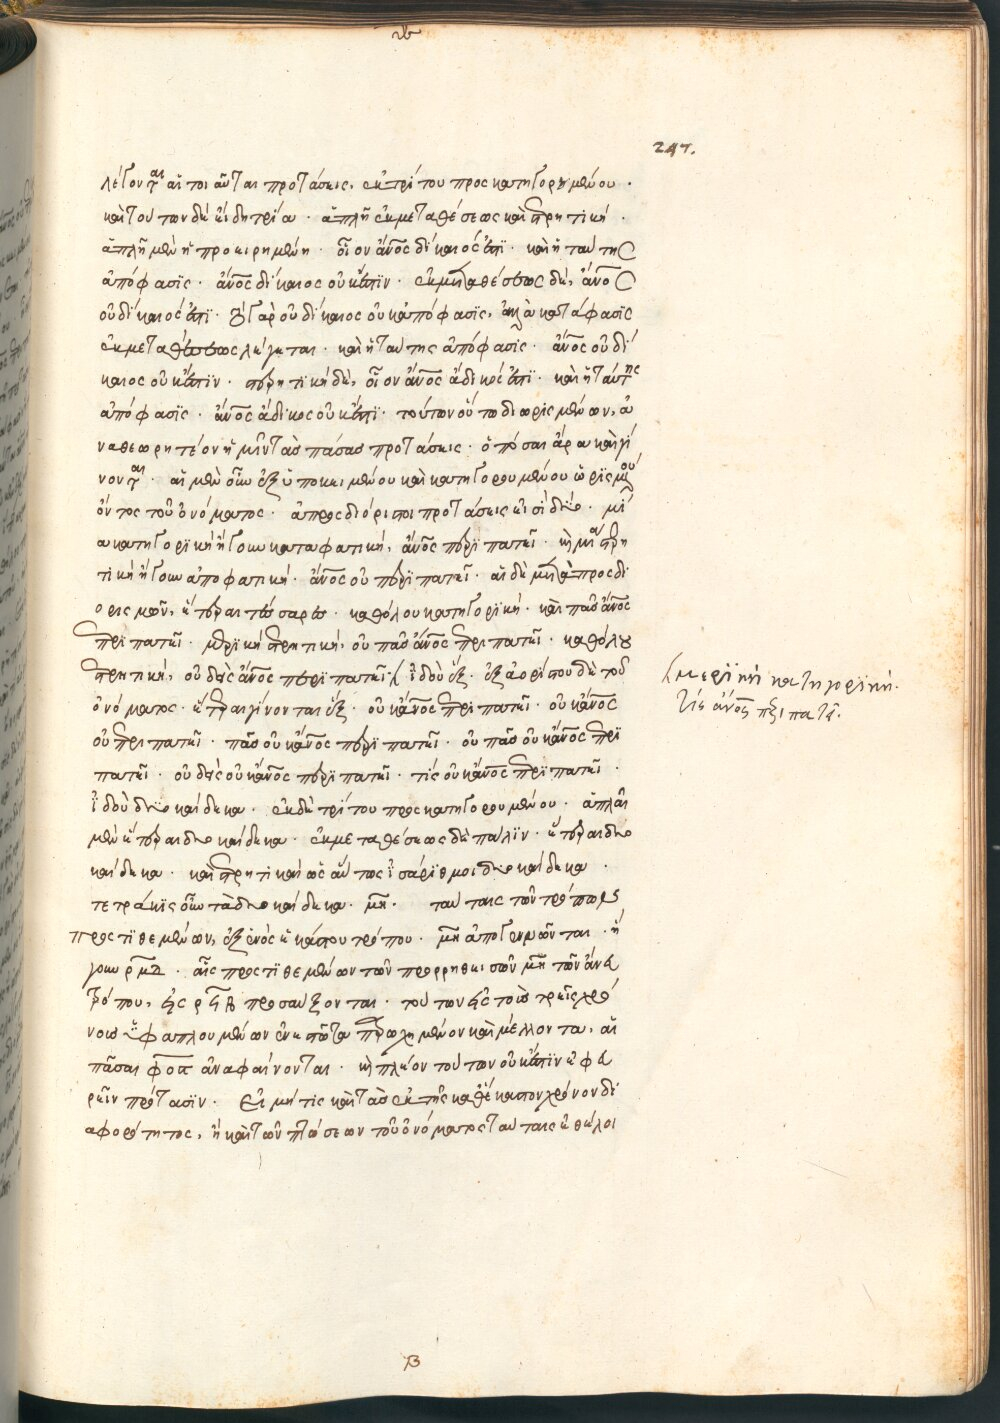 247.
λέγονται αἵ τοι αὗται προτάσεις, ἐκ τρίτου προσκατηγορουμένου ·
καὶ τούτων δὲ εἴδη τρία · ἁπλῆ ἐκ μεταθέσεως καὶ στερητική ·
ἁπλῆ μὲν ἡ προκειρημένη · οἷον ἄνος δίκαιός ἐστι · καὶ ἡ ταύτης
ἀπόφασις · ἄνος δίκαιος οὐκ ἔστιν · ἐκ μεταθέσεως δὲ, ἄνος
οὐ δίκαιός ἐστι · τὸ γὰρ οὐ δίκαιος οὐκ ἀπόφασις, ἀλλὰ κατάφασις
ἐκ μεταθέσεως λέγεται · καὶ ἡ ταύτης ἀπόφασις · ἄνος οὐ δί
καιος οὐκ ἔστιν · στερητικὴ δὲ, οἷον ἄνος ἄδικός ἐστι · καὶ ἡ ταύτης
ἀπόφασις · ἄνος ἄδικος οὐκ ἔστι · τούτων οὕτω διωρισμένων, ἀ
ναθεωρητέον ἡμῖν τὰς πάσας προτάσεις · ὁπόσαι ἄρα καὶ γί
νονται · αἱ μὲν οὖν ἐξ ὑποκειμένου καὶ κατηγορουμένου ὡρισμένου
ὄντος τοῦ ὀνόματος · ἀπροσδιόριστοι προτάσεις εἰσὶ δύο · μί
α κατηγορικὴ ἤγουν καταφατική, ἄνος περιπατεῖ · καὶ μία στερη
τικὴ ἤγουν ἀποφατική · ἄνος οὐ περιπατεῖ · αἱ δὲ μετὰ προσδι
ορισμῶν, ἕτεραι τέσσαρες · καθόλου κατηγορική · καὶ πᾶς ἄνος
περιπατεῖ · μερικὴ στερητική, οὐ πᾶς ἄνος περιπατεῖ · καθόλου
στερητική, οὐδεὶς ἄνος περιπατεῖ ἰδοὺ ἕξ · ἐξ ἀορίστου δὲ τοῦ
ὀνόματος · ἕτεραι γίνονται ἕξ · οὐκ ἄνος περιπατεῖ · οὐκ ἄνος
οὐ περιπατεῖ · πᾶς οὐκ ἄνος περιπατεῖ · οὐ πᾶς οὐκ ἄνος περι
πατεῖ · οὐδεὶς οὐκ ἄνος περιπατεῖ · τίς οὐκ ἄνος περιπατεῖ ·
ἰδοὺ δυοκαίδεκα · ἐκ δὲ τρίτου προσκατηγορουμένου · ἁπλαῖ
μὲν ἕτεραι δυοκαίδεκα · ἐκ μεταθέσεως δὲ πάλιν · ἕτεραι δυο
καίδεκα · καὶ στερητικαὶ ὡσαύτως ἰσάριθμοι δυοκαίδεκα ·
τετράκις οὖν τὰ δυοκαίδεκα · μη · ταύταις τῶν τρόπων
προστιθεμένων, ἐξ ἑνὸς ἑκάστου τρόπου · μη ἀπογεννῶνται · ἤ
γουν ρμδ · αἷς προστιθεμένων τῶν προρρηθεισῶν μη τῶν ἄνευ
τρόπου, εἰς ρϟβ προσαύξονται · τούτων εἰς τοὺς τρεῖς χρό
νους ἐφαπλουμένων ἐνεστῶτα παρῳχημένον καὶ μέλλοντα, αἱ
πᾶσαι φος ἀναφαίνονται · καὶ πλέον τούτων οὐκ ἔστιν ἐφευ
ρεῖν πρότασιν · Εἰ μή τις καὶ τὰς ἐκ τῆς καθ' ἕκαστον χρόνον δι
αφορότητος, ἢ καὶ τῶν πτώσεων τοῦ ὀνόματος ταύταις ἐθέλοι
μερικὴ κατηγορικὴ.
τὶς ἄνος περιπατεῖ.
β